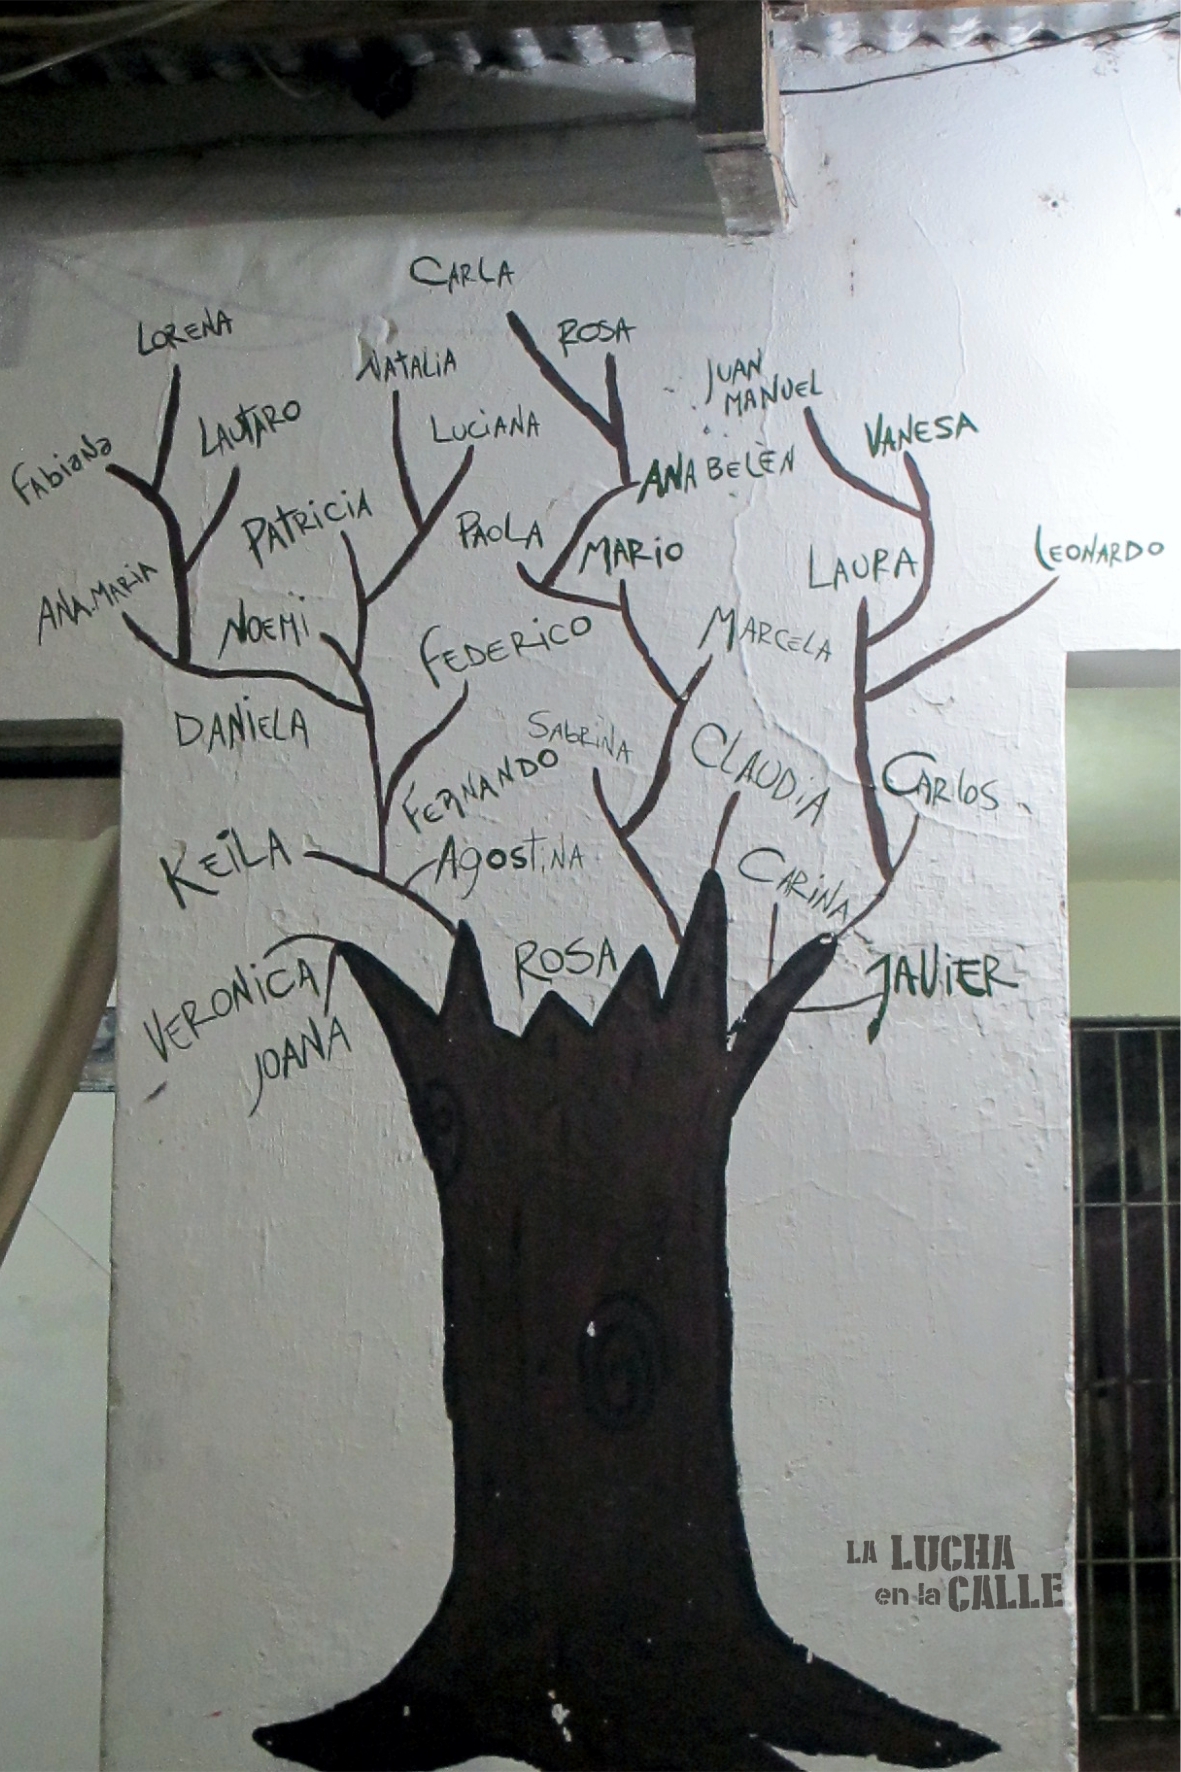 CARLA
LORENA
ROSA
NATALIA
JUAN
MANUEL
LAUTARO
LUCIANA
VANESA
Fabiana
ANA BELÈN
PATRICIA
PAOLA
MARIO
LAURA
LEONARDO
ANA.MARIA
NOEMI
FEDERICO
MARCELA
DANIELA
SAbRINA
CLAUDIA
FERNANDO
CARLOS
KEILA
AgostiNA
CARINA
ROSA
JAVIER
VERONICA
JOANA
LA LUCHA
en la CALLE